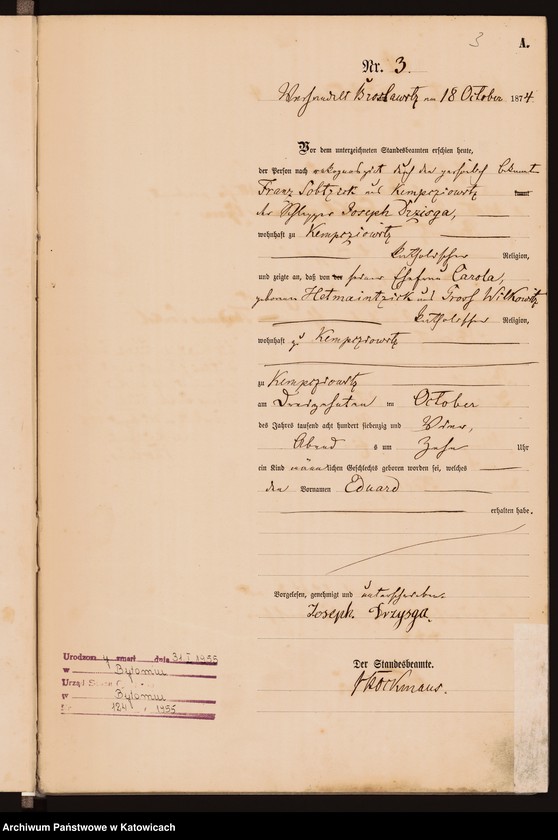 3
A.
Nr. 3.
Verhandelt Broslawitz am 18 October 1874.
Vor dem unterzeichneten Standesbeamten erschien heute,
der Person nach rekognoszirt durch den persönlich bekannten
Franz Sobtzick aus Kempcziowitz
der Schlepper Joseph Drzisga,
wohnhaft zu Kempcziowitz
katholischer Religion,
und zeigte an, daß von der seiner Ehefrau Carola,
geborenen Hetmaintzick aus Groß Wilkowitz
katholischer Religion,
wohnhaft zu Kempcziowitz
zu Kempcziowitz
am Dreizehnten ten October
des Jahres tausend acht hundert siebenzig und Vier,
Abends um Zehn Uhr
ein Kind männlichen Geschlechts geboren worden sei, welches
den Vornamen Eduard
erhalten habe.
Vorgelesen, genehmigt und unterschrieben.
Joseph Drzysga.
Der Standesbeamte.
Urodzony zmarł dnia 31 I 1955
w Bytomiu
Urząd
w Bytomiu
Nr 124 / 1955
Archiwum Państwowe w Katowicach